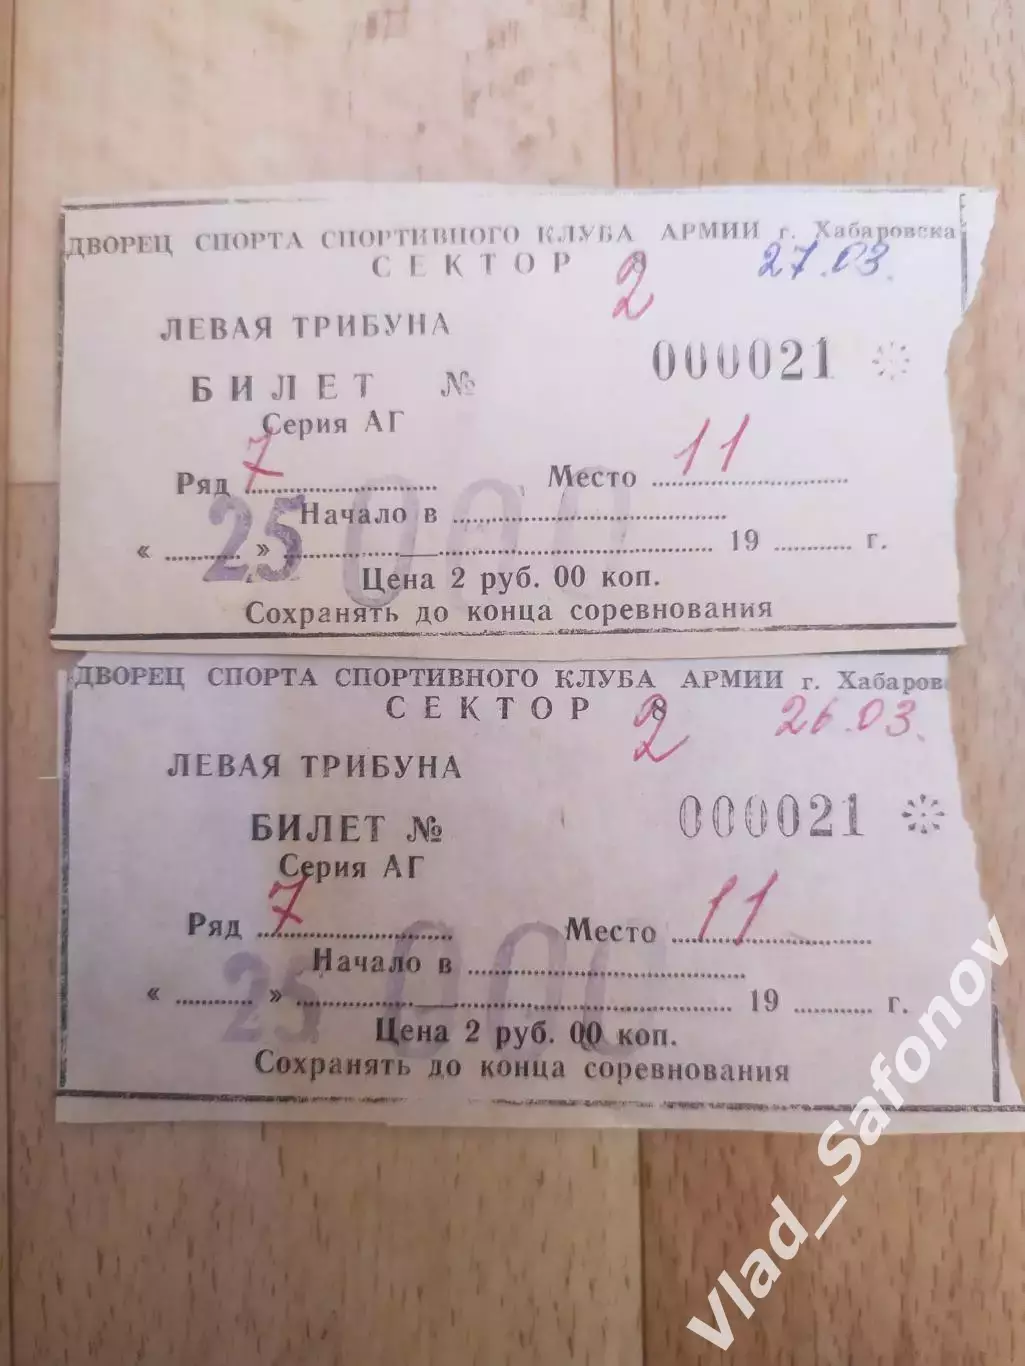 ДВОРЕЦ СПОРТА СПОРТИВНОГО КЛУБА АРМИИ г. Хабаровска
СЕКТОР 8 2 27.03.
ЛЕВАЯ ТРИБУНА
БИЛЕТ № 000021
Серия АГ
Ряд 7 Место 11
25 000
Начало в
« » 19 г.
Цена 2 руб. 00 коп.
Сохранять до конца соревнования
ДВОРЕЦ СПОРТА СПОРТИВНОГО КЛУБА АРМИИ г. Хабаров
СЕКТОР 8 2 26.03.
ЛЕВАЯ ТРИБУНА
БИЛЕТ № 000021
Серия АГ
Ряд 7 Место 11
25 000
Начало в
« » 19 г.
Цена 2 руб. 00 коп.
Сохранять до конца соревнования
Vlad_Safonov